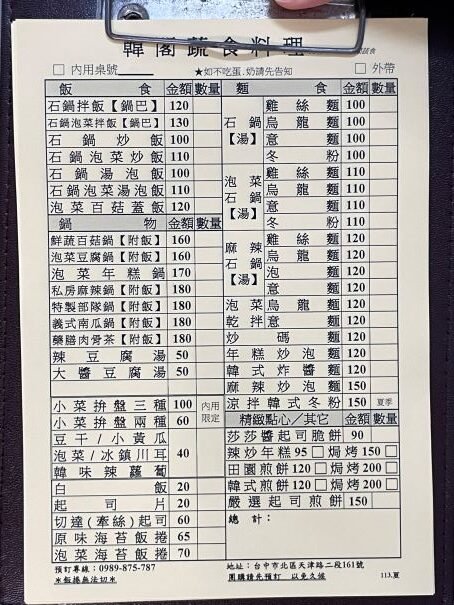 韓閣蔬食料理
蔬食
□ 內用桌號 ★如不吃蛋.奶請先告知 □ 外帶
飯食 金額 數量
石鍋拌飯【鍋巴】 120
石鍋泡菜拌飯【鍋巴】 130
石鍋炒飯 100
石鍋泡菜炒飯 110
石鍋湯泡飯 100
石鍋泡菜湯泡飯 110
泡菜百菇蓋飯 120
鍋物 金額 數量
鮮蔬百菇鍋【附飯】 160
泡菜豆腐鍋【附飯】 160
泡菜年糕鍋 170
私房麻辣鍋【附飯】 180
特製部隊鍋【附飯】 180
義式南瓜鍋【附飯】 180
藥膳肉骨茶【附飯】 180
辣豆腐湯 50
大醬豆腐湯 50
小菜拚盤三種 100 內用
小菜拚盤兩種 60 限定
豆干/小黃瓜
泡菜/冰鎮川耳 40
韓味辣蘿蔔
白飯 20
起司片 20
切達(牽絲)起司 60
原味海苔飯捲 65
泡菜海苔飯捲 70
預訂專線：0989-875-787
※飯捲無法切※
麵食 金額 數量
石鍋【湯】
雞絲麵 100
烏龍麵 100
意麵 100
冬粉 100
泡菜石鍋【湯】
雞絲麵 110
烏龍麵 110
意麵 110
冬粉 110
麻辣石鍋【湯】
雞絲麵 120
烏龍麵 120
泡麵 120
意麵 120
泡菜烏龍麵 120
乾拌意麵 120
炒碼麵 120
年糕炒泡麵 120
韓式炸醬麵 120
麻辣炒泡麵 150
涼拌韓式冬粉 150 夏季
精緻點心/其它 金額 數量
莎莎醬起司脆餅 90
辣炒年糕 95 □ 焗烤 150 □
田園煎餅 120 □ 焗烤 200 □
韓式煎餅 120 □ 焗烤 200 □
嚴選起司煎餅 150
總計：
地址：台中市北區天津路二段161號
團購請先預訂 以免久候
113.夏